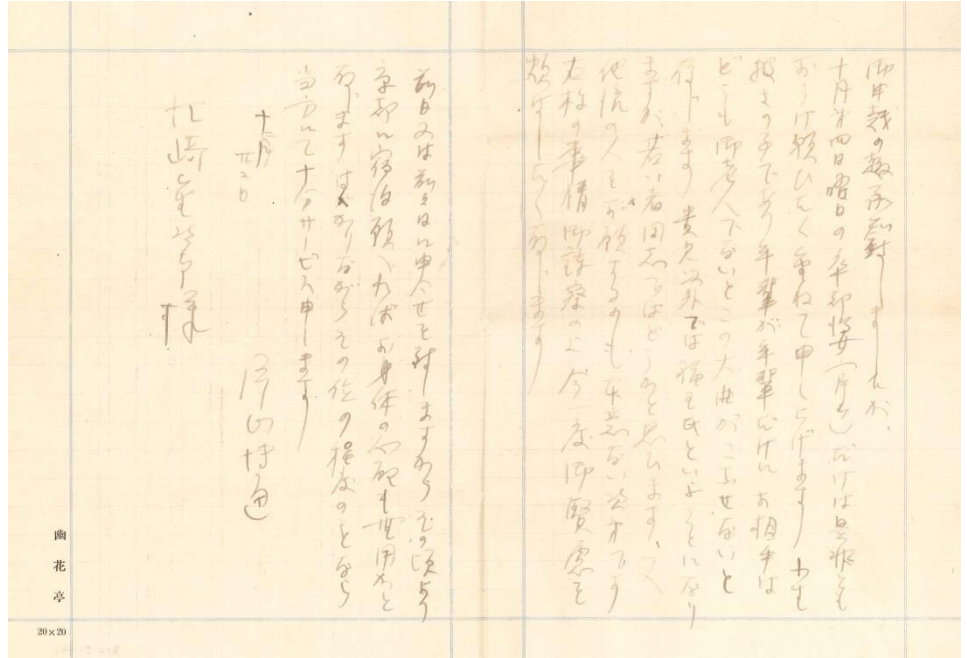 御申越の趣承知致しましたが、
十月第四日曜日の卒都婆（月）だけは是非とも
おうけ願ひたく重ねて申し上げます
披きの子であり年輩が年輩だけにお相手は
どうも御老人でないとこの大曲がこなせないと
存じます 貴兄以外では といふことになり
ますが、若い者同志ではどうかと思ひます、
他流の人をお願するのも
右様の事情御諒察の上今一度御賢慮を
煩はしたく存じます
前日又は前々日に申合せを致しますからその頃より
京都に宿泊願へればお身体の心配も無用かと
存じます はばかりながらその位の程度のことなら
当方にて十分サービス申します
十月廿二日
片山博通
柱崎 様
幽花亭
20×20